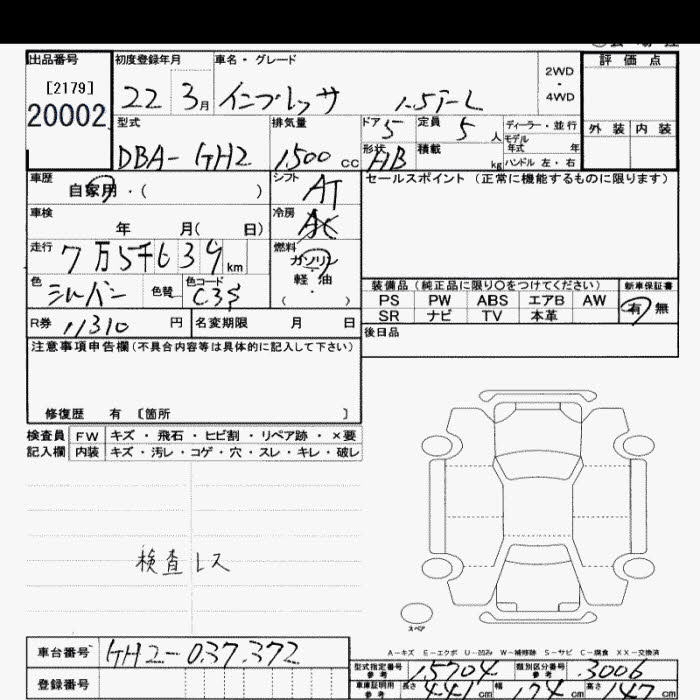 出品番号 初度登録年月 車名・グレード 評価点
[2179] 2WD・4WD
20002 22 3月 インプレッサ 1.5i-L
型式 排気量 ドア 5 定員 5人 ディーラー・並行 外装 内装
モデル年式 年
DBA-GH2 1,500 cc 形状 HB 積載 kg ハンドル 左・右
車歴 自家用・( ) シフト AT セールスポイント (正常に機能するものに限ります)
車検 年 月( 日) 冷房 AC
走行 7万5千639km 燃料 ガソリン
軽油
・
( )
色 シルバー 色替 色コード C3S
装備品(純正品に限り〇をつけてください) 新車保証書
PS PW ABS エアB AW 有 無
SR ナビ TV 本革
R券 11310 円 名変期限 月 日 後日品
注意事項申告欄(不具合内容等は具体的に記入して下さい)
修復歴 有 〔箇所 〕
検査員 FW キズ・飛石・ヒビ割・リペア跡・×要
記入欄 内装 キズ・汚レ・コゲ・穴・スレ・キレ・破レ
検査レス
スペア
A-キズ E-エクボ U-凹み W-補修跡 S-サビ C-腐食 XX-交換済
車台番号 GH2-037372
型式指定番号 参考 15704 類別区分番号 参考 3006
登録番号 車庫証明用 参考 長さ 441cm 幅 174cm 高さ 147cm